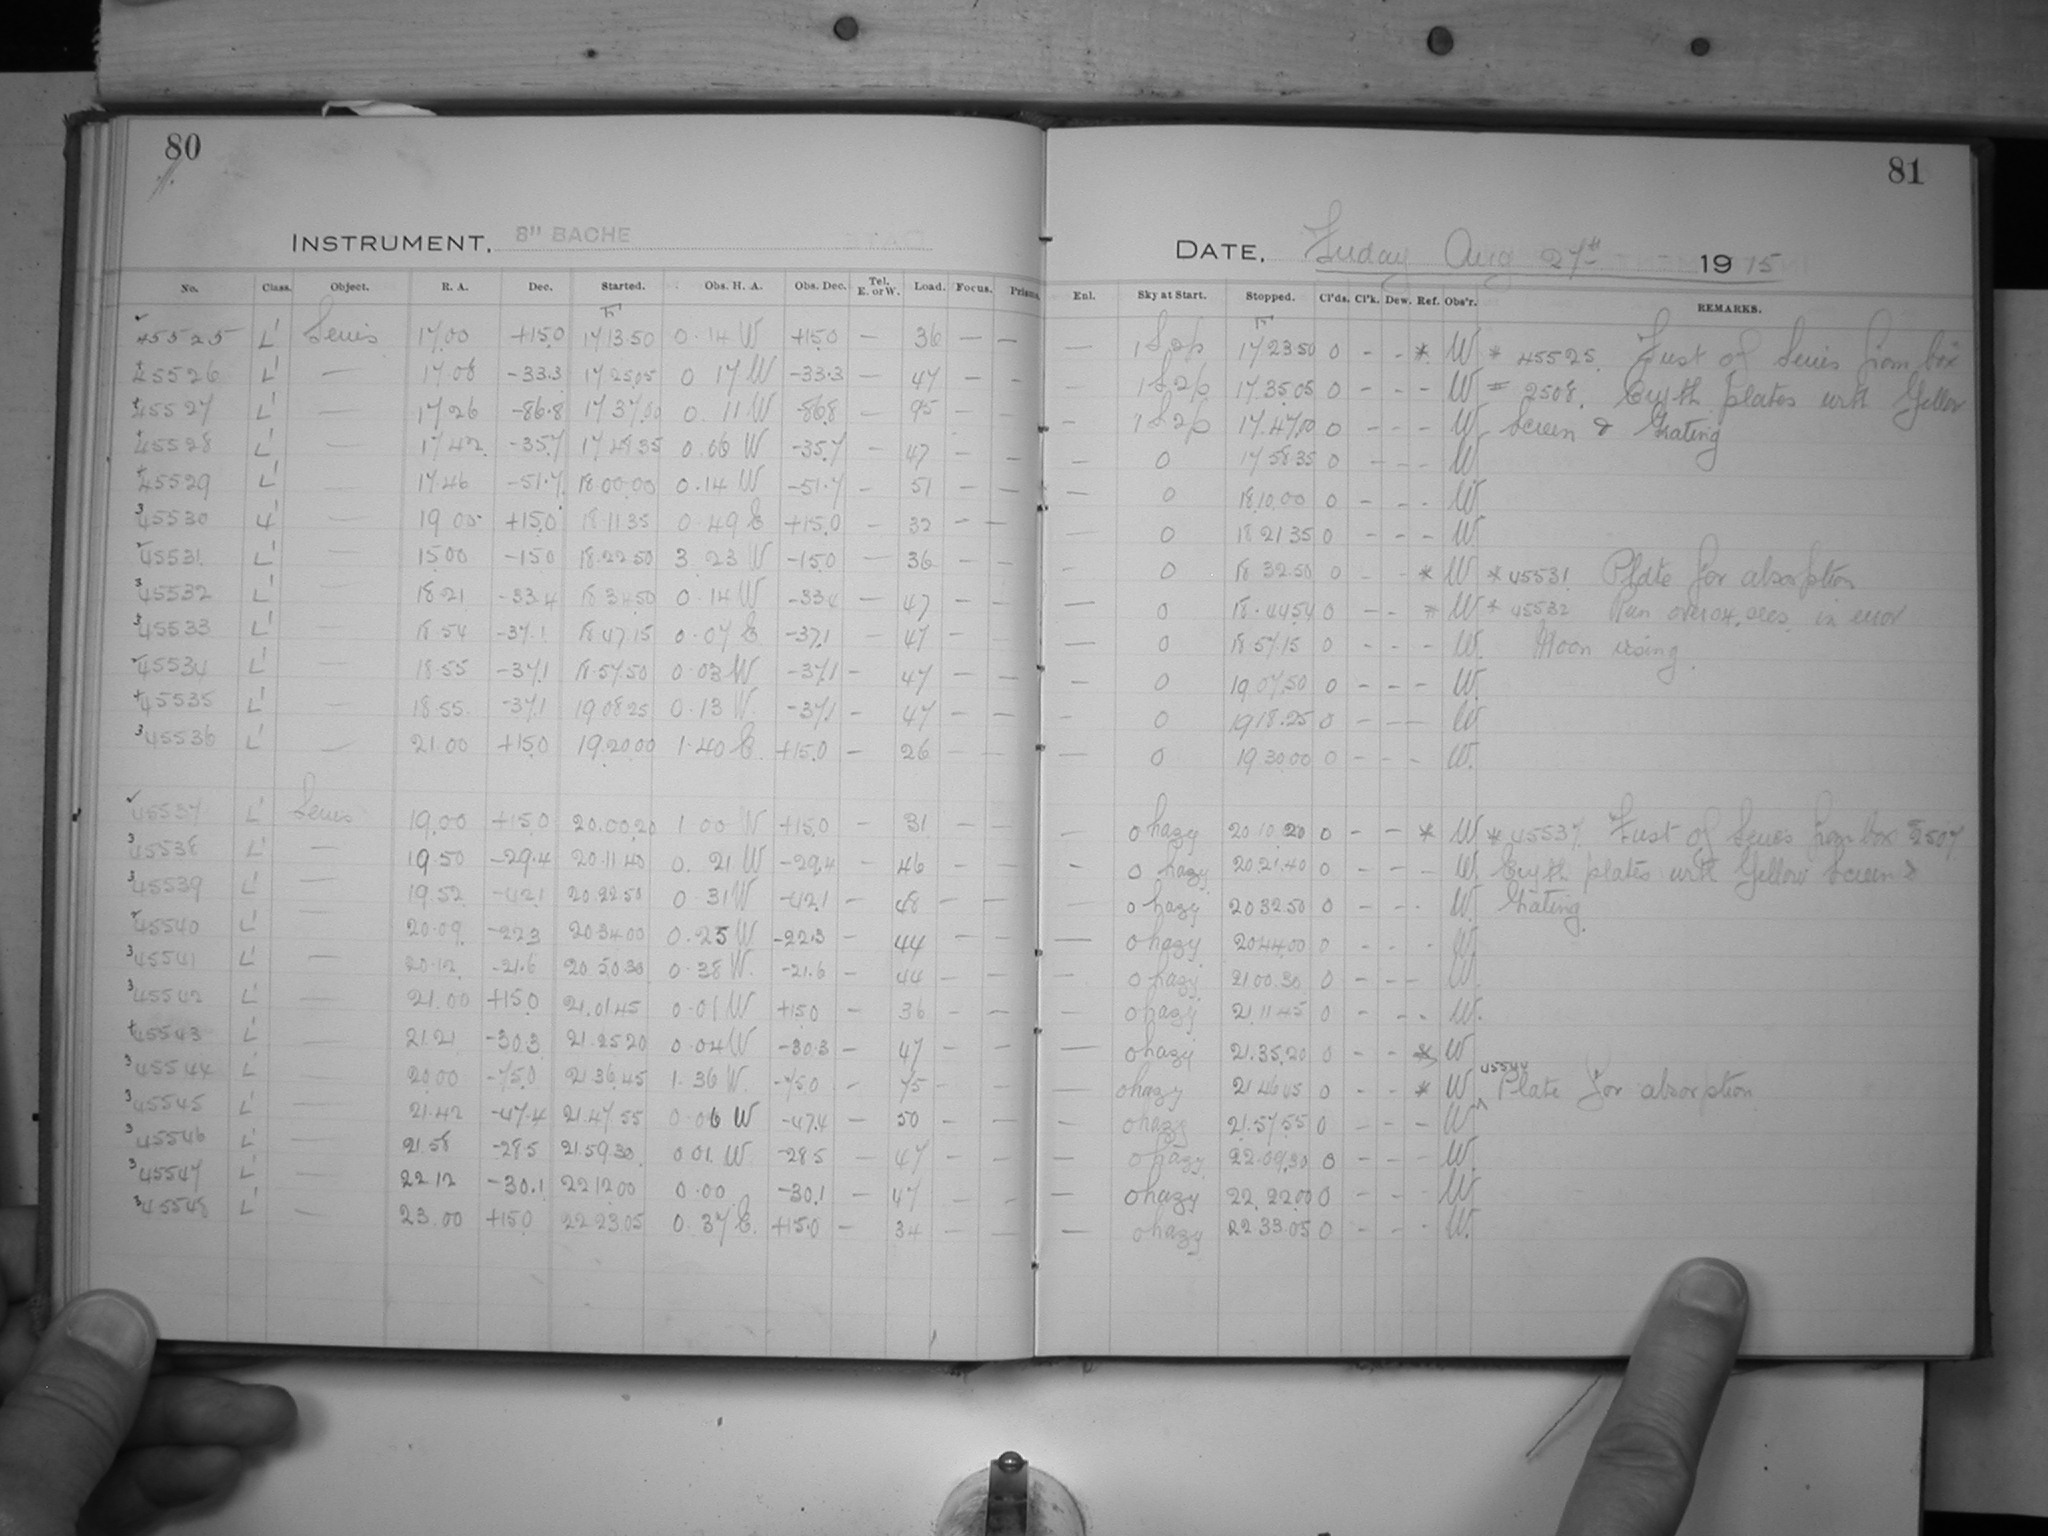 80
81
INSTRUMENT. 8" BACHE
DATE. Friday Aug 27th 1915
No. Class. Object. R. A. Dec. Started. Obs. H. A. Obs. Dec. Tel. E. or W. Load. Focus. Prisms.
Enl. Sky at Start. Stopped. Cl'ds. Cl'k. Dew. Ref. Obs'r. REMARKS.
45525 L' Series 17.00 +15.0 17 13.50 0.14 W +15.0 — 36 — —
45526 L' — 17.08 -33.3 17 25.05 0 17 W -33.3 — 47 — —
45527 L' — 17 26 -86.8 17 37.00 0. 11 W -86.8 — 95 — —
45528 L' — 17 42 -35.7 17 48 35 0.06 W -35.7 — 47 — —
45529 L' — 17.46 -51.7 18.00.00 0.14 W -51.7 — 51 — —
45530 L' — 19 00 +15.0 18 11 35 0.49 E +15.0 — 32 — —
45531 L' — 15.00 -15.0 18.22 50 3 23 W -15.0 — 36 — —
45532 L' — 18.21 -33.4 18 34 50 0.14 W -33.4 — 47 — —
45533 L' — 18 54 -37.1 18 47.15 0.07 E -37.1 — 47 — —
45534 L' — 18.55 -37.1 18.57.50 0.03 W -37.1 — 47 — —
45535 L' — 18.55 -37.1 19 08 25 0.13 W -37.1 — 47 — —
45536 L' — 21.00 +15.0 19.20 00 1.40 E. +15.0 — 26 — —
45537 L' Series 19.00 +15.0 20.00.20 1 00 W +15.0 — 31 — —
45538 L' — 19 50 -29.4 20 11 40 0. 21 W -29.4 — 46 — —
45539 L' — 19 52 -42.1 20.22 50 0 31 W -42.1 — 48 — —
45540 L' — 20.09 -22.3 20 34 00 0.25 W -22.3 — 44 — —
45541 L' — 20.12 -21.6 20 50 30 0.38 W. -21.6 — 44 — —
45542 L' — 21.00 +15.0 21.01.45 0.01 W +15.0 — 36 — —
45543 L' — 21.21 -30.3 21.25 20 0.04 W -30.3 — 47 — —
45544 L' — 20.00 -75.0 21 36.45 1.36 W. -75.0 — 75 — —
45545 L' — 21.42 -47.4 21.47 55 0.06 W -47.4 — 50 — —
45546 L' — 21.58 -28.5 21.59.30 0 01. W -28.5 — 47 — —
45547 L' — 22.12 -30.1 22 12 00 0.00 -30.1 — 47 — —
45548 L' — 23.00 +15.0 22 23 05 0.37 E. +15.0 — 34 — —
— 17 23 50 0 - - * W * 45525. First of Series from box
— 17.35.05 0 - - - W = 2508. Cryth plates with Yellow
— 17.47.00 0 - - - W Screen & Grating
— 0 17 58 35 0 - - - W
— 0 18.10.00 0 - - - W.
— 0 18 21 35 0 - - - W.
— 0 18 32.50 0 - - * W * 45531 Plate for absorption
— 0 18.44 54 0 - - * W * 45532 Run over 04. secs. in error
— 0 18 57.15 0 - - - W. Moon rising.
— 0 19 07.50 0 - - - W.
— 0 19 18.25 0 - - - W
— 0 19 30 00 0 - - - W.
— 0 hazy 20 10 20 0 - - * W * 45537. First of Series from box 2507
— 0 hazy 20.21.40 0 - - - W. Cryth plates with Yellow Screen &
— 0 hazy 20 32.50 0 - - - W. Grating
— 0 hazy 20 44 00 0 - - - W
— 0 hazy 21 00.30 0 - - - W.
— 0 hazy 21.11 45 0 - - - W.
— 0 hazy 21.35.20 0 - - * W
— 0 hazy 0 - - * W 45544 Plate for absorption
— 0 hazy 21.57.55 0 - - - W
— 0 hazy 22.09.30 0 - - - W.
— 0 hazy 22. 22 00 0 - - - W
— 0 hazy 22 33.05 0 - - - W.